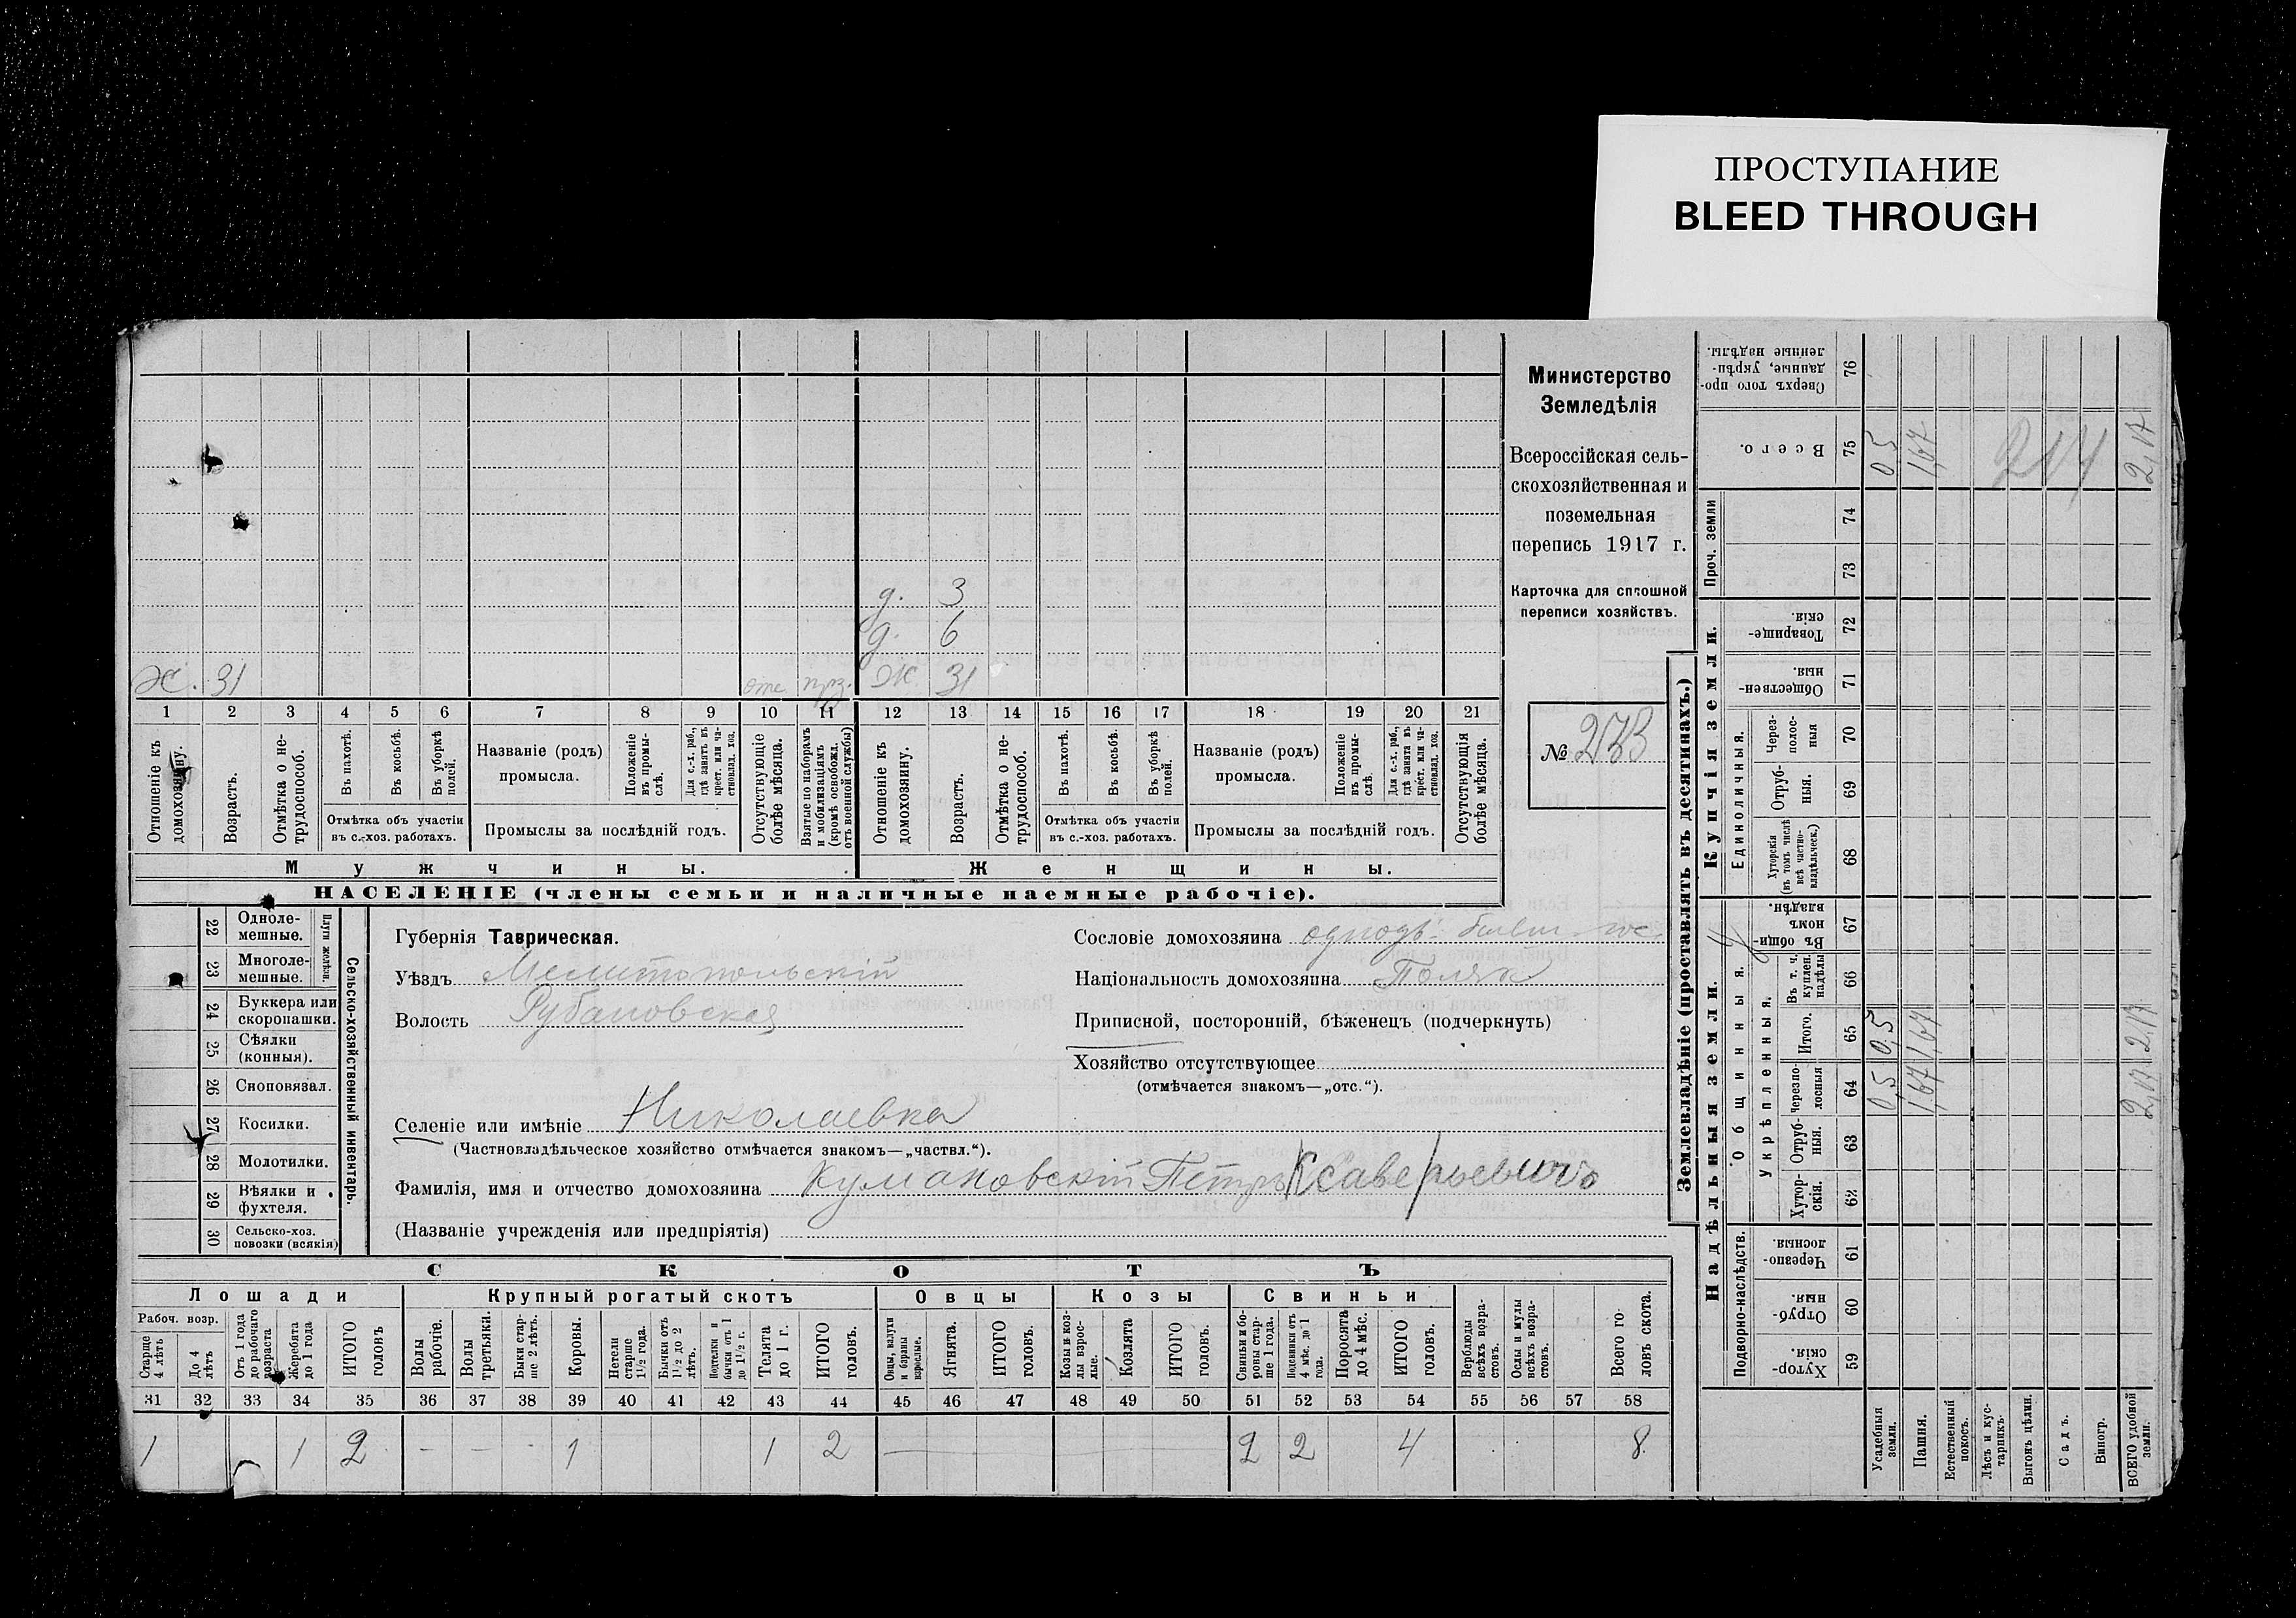 ПРОСТУПАНИЕ
BLEED THROUGH
Министерство
Земледѣлія
Всероссійская сель-
скохозяйственная и
поземельная
перепись 1917 г.
Карточка для сплошной
переписи хозяйствъ.
№ 273
д. 3
д. 6
Х. 31 отс прз. Ж 31
1 2 3 4 5 6 7 8 9 10 11 12 13 14 15 16 17 18 19 20 21
Отношеніе къ домохозяину.
Возрастъ.
Отмѣтка о не-трудоспособ.
Въ пахотѣ.
Въ косьбѣ.
Въ уборкѣ полей.
Отмѣтка объ участіи въ с.-хоз. работахъ.
Названіе (родъ) промысла.
Положеніе въ промы-слѣ.
Для с.-х. раб., гдѣ занятъ въ крест. или ча-стновлад. хоз.
Промыслы за послѣдній годъ.
Отсутствующіе болѣе мѣсяца.
Взятые по наборамъ и мобилизаціямъ (кромѣ освобожд. отъ военной службы)
Отношеніе къ домохозяину.
Возрастъ.
Отмѣтка о не-трудоспособ.
Въ пахотѣ.
Въ косьбѣ.
Въ уборкѣ полей.
Отмѣтка объ участіи въ с.-хоз. работахъ.
Названіе (родъ) промысла.
Положеніе въ промы-слѣ.
Для с.-х. раб., гдѣ занята въ крест. или ча-стновлад. хоз.
Промыслы за послѣдній годъ.
Отсутствующія болѣе мѣсяца.
Мужчины. Женщины.
НАСЕЛЕНІЕ (члены семьи и наличные наемные рабочіе).
22 Одноле-мешные.
23 Многоле-мешные.
Плуги желѣзн.
24 Буккера или скоропашки.
25 Сѣялки (конныя).
26 Сноповязал.
27 Косилки.
28 Молотилки.
29 Вѣялки и фухтеля.
30 Сельско-хоз. повозки (всякія)
Сельско-хозяйственный инвентарь.
Губернія Таврическая.
Уѣздъ Мелитопольскій
Волость Рубановская
Сословіе домохозяина однодв.
Національность домохозяина Поляк
Приписной, посторонній, бѣженецъ (подчеркнуть)
Хозяйство отсутствующее
(отмѣчается знакомъ—„отс.“).
Селеніе или имѣніе Николаевка
(Частновладѣльческое хозяйство отмѣчается знакомъ—„частвл.“).
Фамилія, имя и отчество домохозяина Кумановскій Петръ Ксаверьевичъ
(Названіе учрежденія или предпріятія)
СКОТЪ
Лошади Крупный рогатый скотъ Овцы Козы Свиньи
Рабоч. возр.
Старше 4 лѣтъ
До 4 лѣтъ
Отъ 1 года до рабочаго возраста
Жеребята до 1 года
ИТОГО головъ
Волы рабочіе.
Волы третьяки.
Быки стар-ше 2 лѣтъ.
Коровы.
Нетели старше 1½ года.
Бычки отъ 1½ до 2 лѣтъ.
Подтелки и бычки отъ 1 до 1½ г.
Телята до 1 г.
ИТОГО головъ.
Овцы, валухи и бараны взрослые.
Ягнята.
ИТОГО головъ.
Козы и коз-лы взрос-лые.
Козлята
ИТОГО головъ.
Свиньи и бо-ровы стар-ше 1 года.
Подсвинки отъ 4 мѣс. до 1 года.
Поросята до 4 мѣс.
ИТОГО головъ.
Верблюды всѣхъ возра-стовъ.
Ослы и мулы всѣхъ возра-стовъ.
Всего го-ловъ скота.
31 32 33 34 35 36 37 38 39 40 41 42 43 44 45 46 47 48 49 50 51 52 53 54 55 56 57 58
1 1 2 - - - 1 1 2 2 2 4 8
Землевладѣніе (проставлять въ десятинахъ.)
Купчія земли.
Надѣльныя земли.
76 Сверхъ того про-данные, укрѣп-ленные надѣлы.
75 Всего. 0,5 1,67 214 2,17
Проч. земли
74
73
72 Товарище-скія.
71 Обществен-ныя.
Единоличныя.
70 Через-полос-ныя
69 Отруб-ныя.
68 Хуторскія (въ томъ числѣ всѣ частно-владѣльческ.)
Общинныя.
67 Въ общин-номъ владѣн.
Укрѣпленныя.
66 Въ т. ч. куплен. надѣлы
65 Итого. 0,5 1,67 2,17
64 Черезпо-лосныя 0,5 1,67 2,17
63 Отруб-ныя.
62 Хутор-скія.
Подворно-наслѣдств.
61 Черезпо-лосныя.
60 Отруб-ныя.
59 Хутор-скія.
Усадебныя земли.
Пашня.
Естественный покосъ.
Лѣсъ и кус-тарникъ.
Выгонъ цѣлин.
Садъ.
Виногр.
ВСЕГО удобной земли.